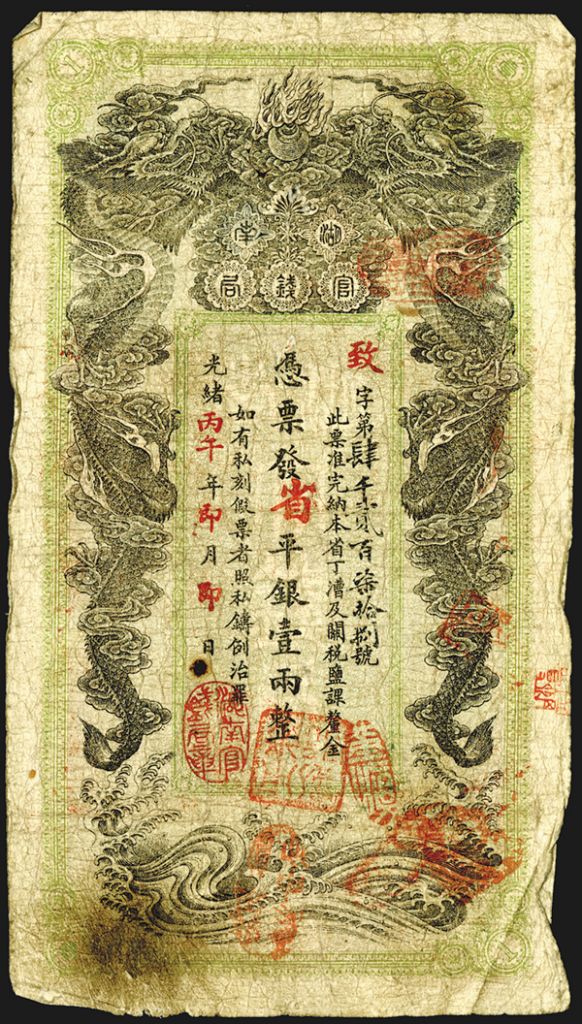 1
湖南
官錢局
致字第肆千貳百柒拾捌號
此票准完納本省丁漕及關稅鹽課釐金
憑票發省平銀壹兩整
如有私刻假票者照私鑄例治罪
光緒丙午年即月即日
湖南官錢局章
1